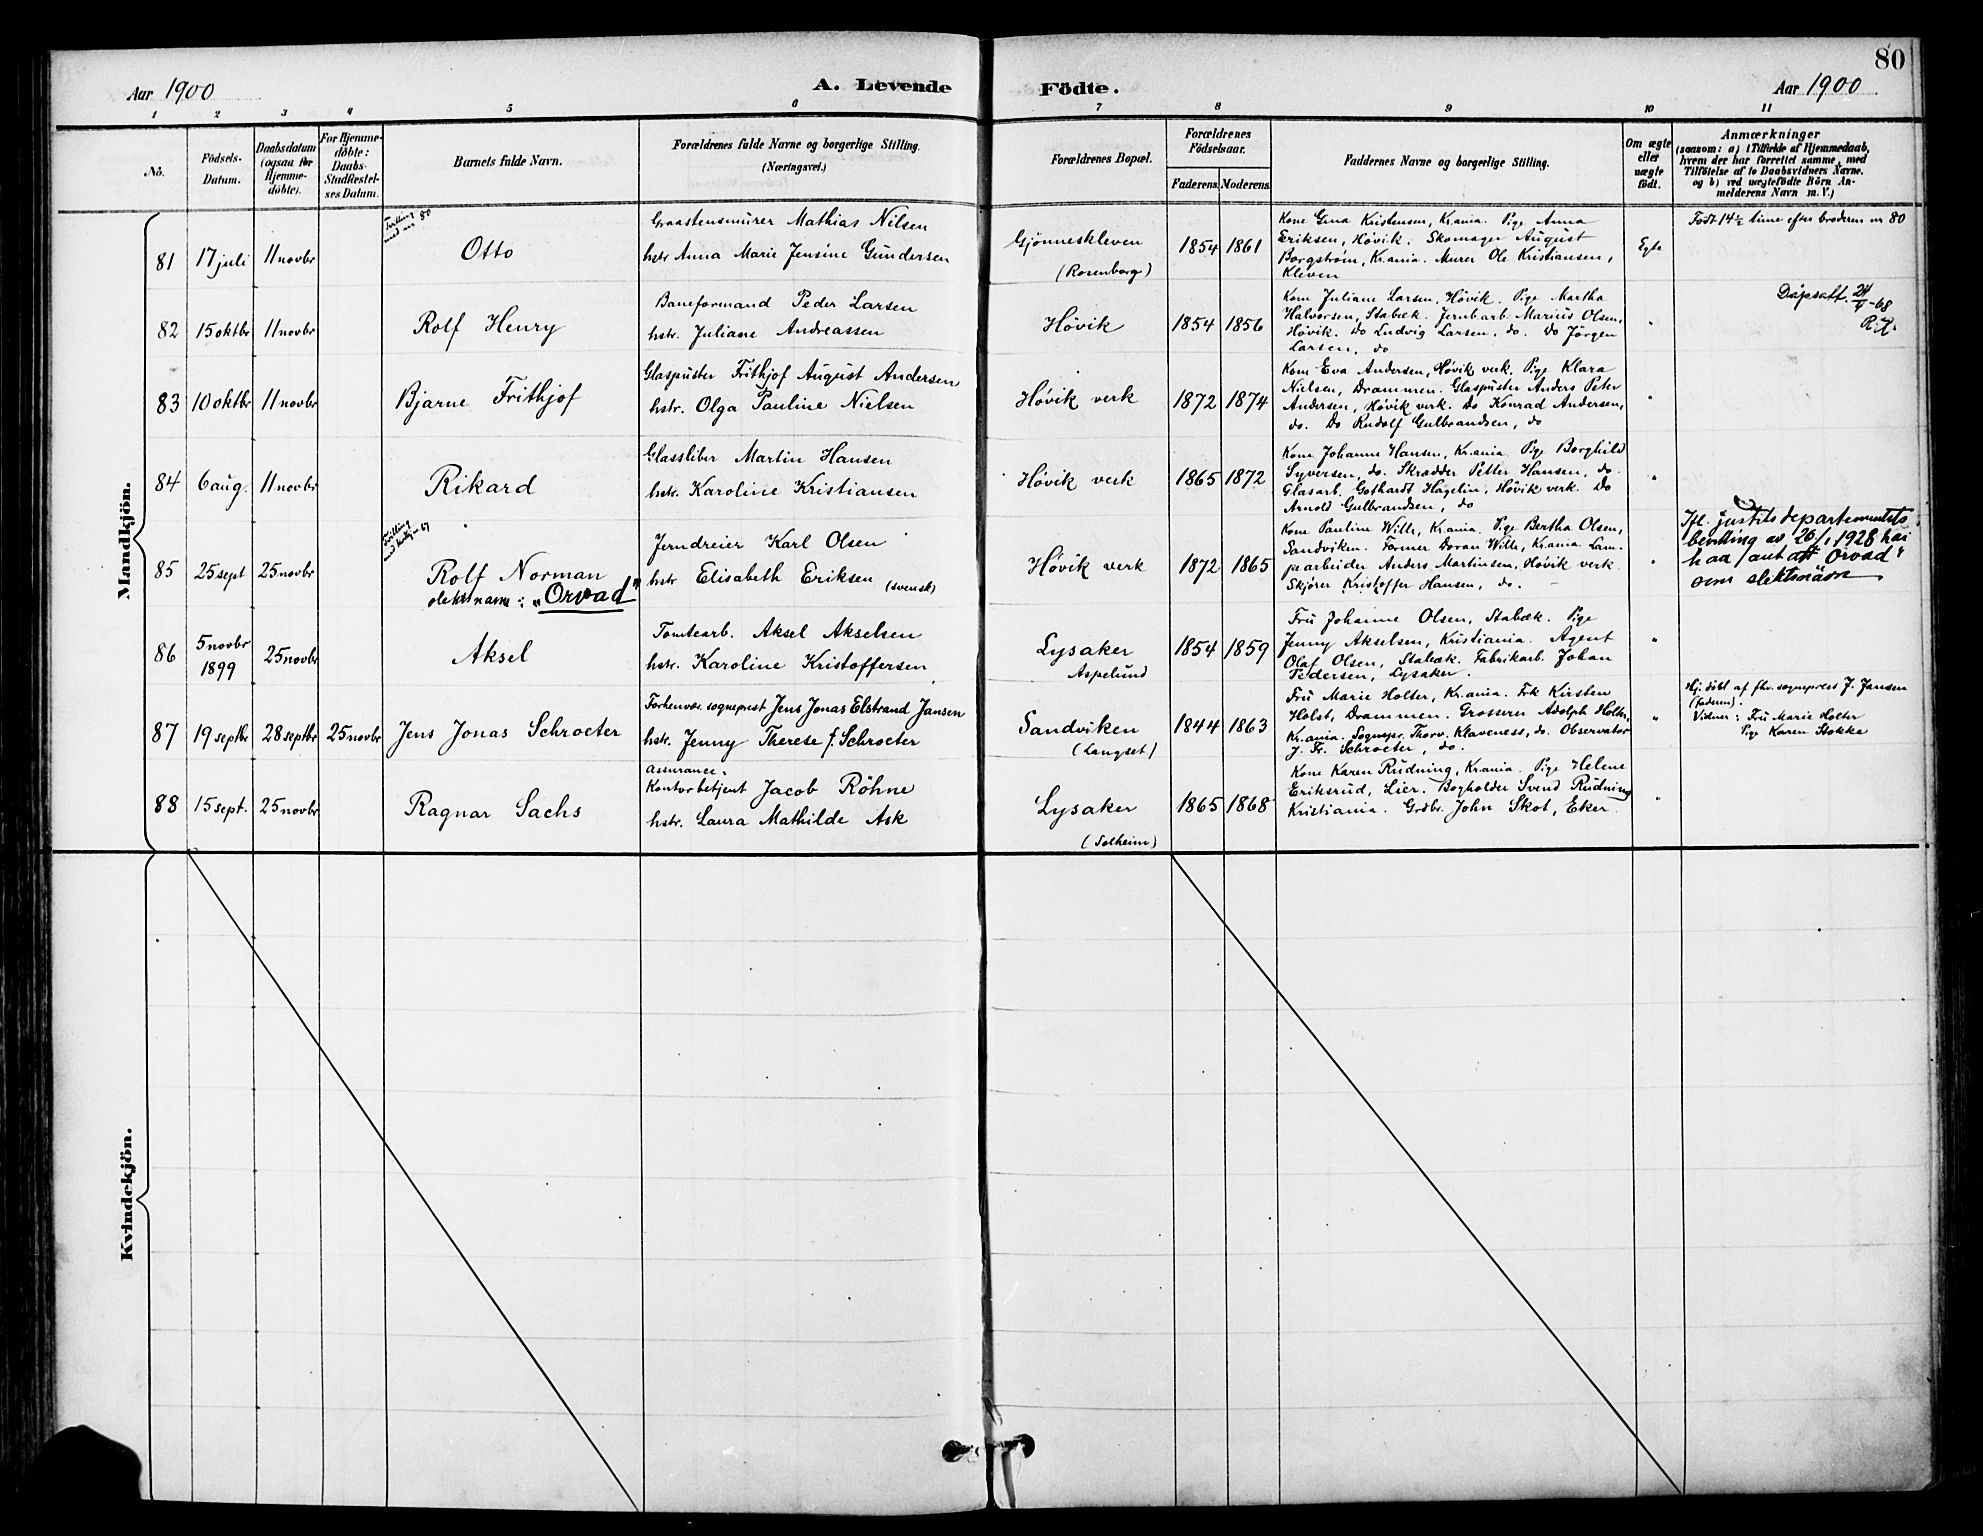 80
Aar 1900
A. Levende
Födte.
Aar 1900
1
2
3
4
5
6
7
8
9
10
11
No.
Födsels-
Datum.
Daabsdatum
(ogsaa for
Hjemme-
döbte).
For Hjemme-
döbte:
Daabs-
Stadfæstel-
ses Datum.
Barnets fulde Navn.
Forældrenes fulde Navne og borgerlige Stilling.
(Næringsvei.)
Forældrenes Bopæl.
Forældrenes
Födselsaar.
Faderens.
Moderens.
Faddernes Navne og borgerlige Stilling.
Om ægte
eller
uægte
födt.
Anmærkninger
(saasom: a) i Tilfælde af Hjemmedaab,
hvem der har forrettet samme, med
Tilföielse af to Daabsvidners Navne,
og b) ved uægtefödte Börn An-
melderens Navn m. V.)
Mandkjön.
81
17 juli
11 novbr
Tvilling
med nr 80
Otto
Graastensmurer Mathias Nilsen
hstr Anna Marie Jensine Gundersen
Gjønneskleven
(Rosenborg)
1854
1861
Kone Gina Kristensen, Kr.ania. Pige Anna
Eriksen, Høvik. Skomager August
Borgstrøm, Kr.ania. Murer Ole Kristiansen,
Kleven
Egte
Født 14½ time efter broderen nr 80
82
15 oktbr
11 novbr
Rolf Henry
Baneformand Peder Larsen
hstr. Juliane Andreassen
Høvik
1854
1856
Kone Juliane Larsen, Høvik. Pige Martha
Halvorsen, Stabæk. Jernbarb. Marius Olsen,
Høvik. Do Ludvig Larsen, do. Do Jørgen
Larsen, do
"
Dåpsatt. 24/ -68
83
10 oktbr
11 novbr
Bjarne Frithjof
Glaspuster Frithjof August Andersen
hstr. Olga Pauline Nielsen
Høvik verk
1872
1874
Kone Eva Andersen, Høvik verk. Pige Klara
Nielsen, Drammen. Glaspuster Anders Peter
Andersen, Høvik verk. Do Konrad Andersen,
do. Do Rudolf Gulbrandsen, do
"
84
6 aug.
11 novbr
Rikard
Glassliber Martin Hansen
hstr. Karoline Kristiansen
Høvik verk
1865
1872
Kone Johanne Hansen, Kr.ania. Pige Borghild
Syversen, do. Skrædder Petter Hansen, do.
Glasarb. Gothardt Hagelin, Høvik verk. Do
Arnold Gulbrandsen, do
"
85
25 sept
25 novbr
Tvilling
med 67
Rolf Norman
slektsnavn: "Orvad"
Jerndreier Karl Olsen
hstr Elisabeth Eriksen (svensk)
Høvik verk
1872
1865
Kone Pauline Wille, Kr.ania. Pige Bertha Olsen,
Sandviken. Former Doran Wille, Kr.ania. Lam-
pearbeider Anders Martinsen, Høvik verk
Skjærer Kristoffer Hansen, do.
"
Ifl. justitsdepartementets
bevilling av 26/1 1928 har
han antatt "Orvad"
som slektsnavn
86
5 novbr
1899
25 novbr
Aksel
Tomtearb. Aksel Akselsen
hstr. Karoline Kristoffersen
Lysaker
Aspelund
1854
1859
Fru Johanne Olsen, Stabæk. Pige
Jenny Akselsen, Kristiania. Agent
Olaf Olsen, Stabæk. Fabrikarb. Johan
Pedersen, Lysaker.
"
87
19 septbr
28 septbr
25 novbr
Jens Jonas Schroeter
Forhenvær. sogneprest Jens Jonas Elstrand Jansen
hstr. Jenny Therese f. Schroeter
Sandviken
(Langset)
1844
1863
Fru Marie Holter, Kr.ania. Frk Kirsten
Holst, Drammen. Grosserer Adolph Holter,
Kr.ania. Sognepr. Thorv. Klaveness, do. Observator
J. Fr. Schroeter, do.
"
Hj. døbt af fhv. sogneprest J. Jansen
(faderen).
Vidner: Fru Marie Holter
Pige Karen Stokke
88
15 sept.
25 novbr
Ragnar Sachs
Assurance-
Kontorbetjent Jacob Röhne
hstr. Laura Mathilde Ask
Lysaker
(Solheim)
1865
1868
Kone Karen Rudning, Kr.ania. Pige Helene
Eriksrud, Lier. Bogholder Svend Rudning
Kristiania. Grdbr. John Skot, Eker
"
Kvindekjön.